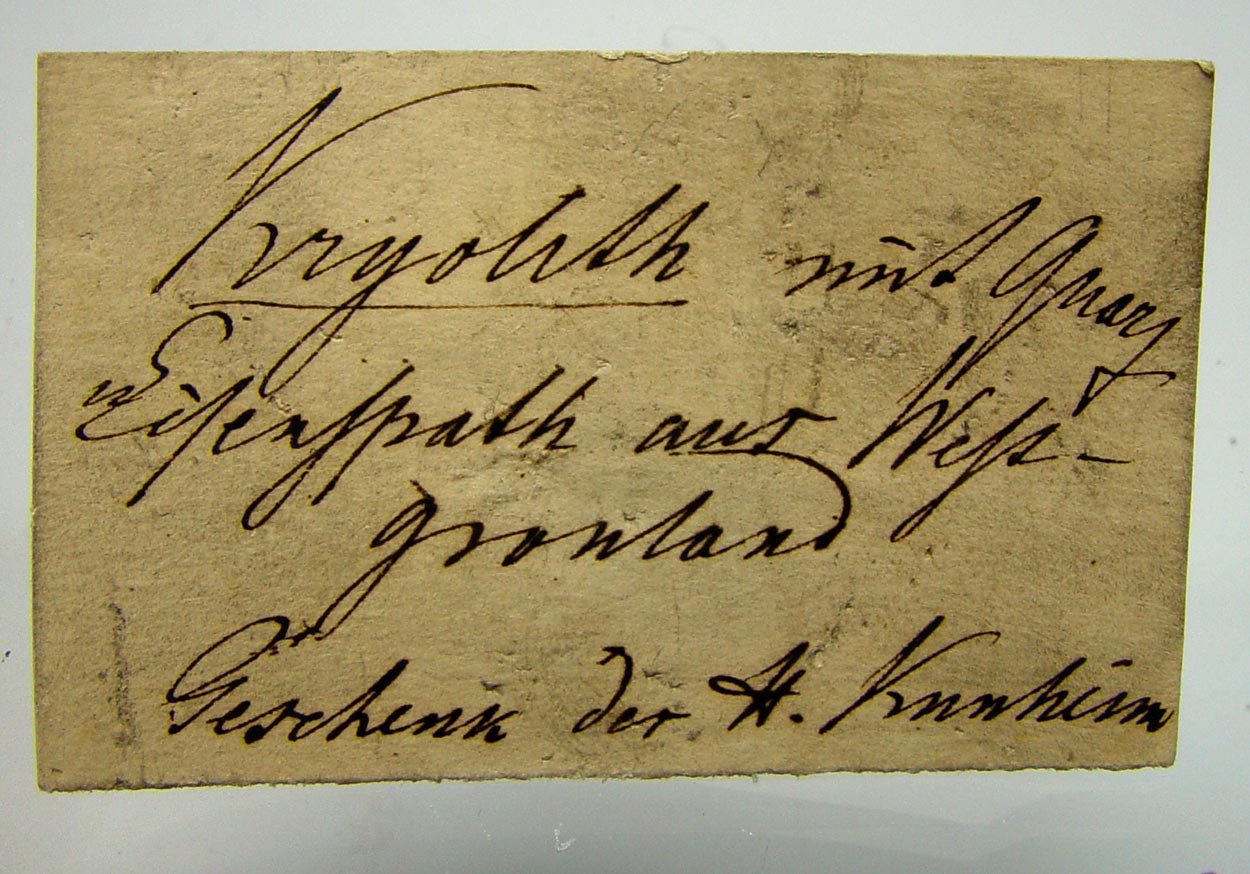 Kryolith mit Quarz
u Eisenspath aus West-
grönland
Geschenk der H. Kunheim